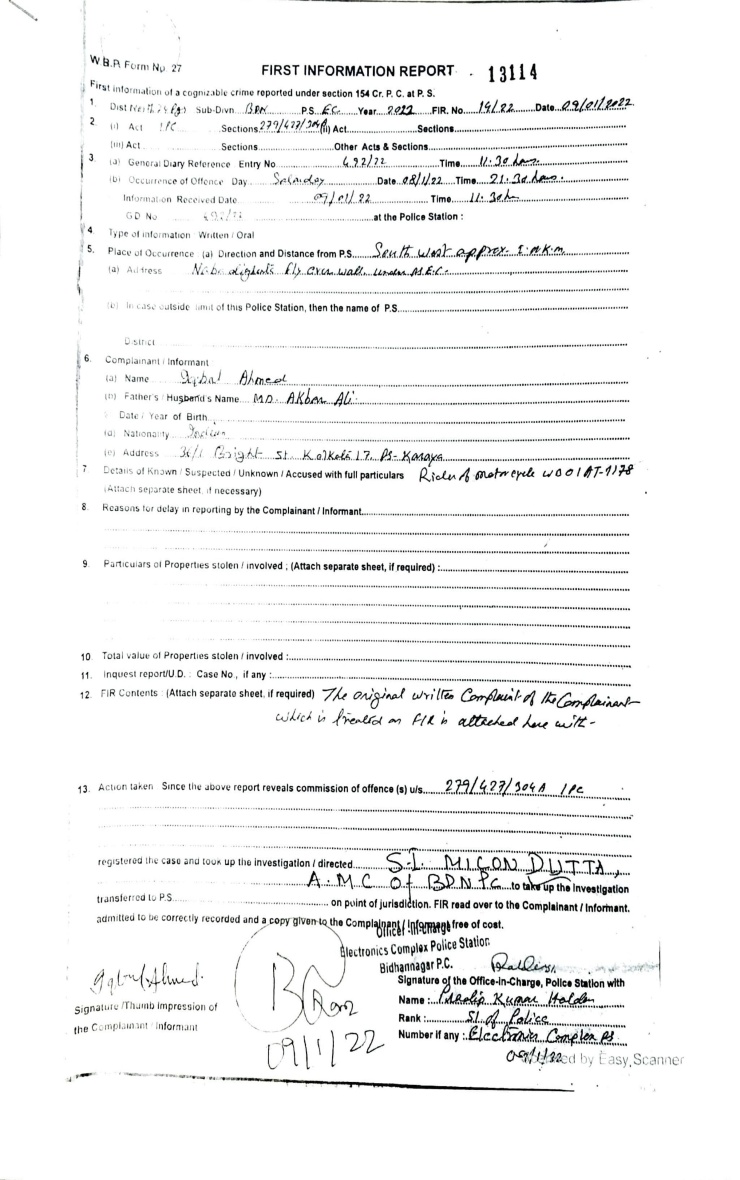 W.B.P. Form No. 27
FIRST INFORMATION REPORT 13114
First information of a cognizable crime reported under section 154 Cr. P. C. at P. S.
1. Dist North 24 Pgs Sub-Divn. BDN P.S. EC Year 2022 FIR. No. 14/22 Date 09/01/2022
2. (i) Act IPC Sections 279/427/304A (ii) Act Sections
(iii) Act Sections Other Acts & Sections
3. (a) General Diary Reference Entry No 492/22 Time 11.30 hrs.
(b) Occurrence of Offence Day Saturday Date 08/1/22 Time 21.30 hrs.
Information Received Date 09/01/22 Time 11.30h
GD No 492/22 at the Police Station :
4. Type of information : Written / Oral
5. Place of Occurrence (a) Direction and Distance from P.S. South West approx. K.m
(a) Address Fly over wall under P.S. E.C.
(b) In case outside limit of this Police Station, then the name of P.S.
District
6. Complainant / Informant
(a) Name Iqbal Ahmed
(b) Father's / Husband's Name MD. Akbar Ali
Date / Year of Birth
(d) Nationality Indian
(e) Address 36/1 Bright St. Kolkata 17. PS- Karaya
7 Details of Known / Suspected / Unknown / Accused with full particulars Rider of motorcycle WB01AT-9178
(Attach separate sheet, if necessary)
8. Reasons for delay in reporting by the Complainant / Informant
9. Particulars of Properties stolen / involved ; (Attach separate sheet, if required) :
10. Total value of Properties stolen / involved :
11. Inquest report/U.D. : Case No., if any :
12. FIR Contents : (Attach separate sheet, if required) The original written Complaint of the Complainant
which is treated as FIR is attached here with-
13. Action taken Since the above report reveals commission of offence (s) u/s 279/427/304A IPC
registered the case and took up the investigation / directed S.I. MIGON DUTTA,
A.M.C Of BDNPC to take up the Investigation
transferred to P.S. on point of jurisdiction. FIR read over to the Complainant / Informant.
admitted to be correctly recorded and a copy given to the Complainant / Informant free of cost.
Officer-in-charge
Electronics Complex Police Station
Bidhannagar P.C.
Iqbal Ahmed.
Signature of the Office-in-Charge, Police Station with
Signature /Thumb Impression of
the Complainant / Informant
Name : Pradip Kumar Halder
Rank : SI. of Police
Number if any : Electronics Complex PS
09/1/22
09/1/22
by Easy Scanner